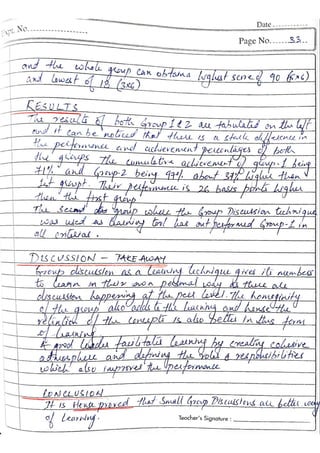 Date ............
Expt. No.
Page No. 33
and the whole group can obtain highest score of 90 (5x6)
and lowest of 18 (3x6)
RESULTS
The results of both Group 1 & 2 are tabulated on the left
and it can be noticed that there is a stark difference in
the performance and achievement percentages of both
the groups The cumulative achievement of group-1 being
71% and Group-2 being 97% about 37% higher than
1st group. Their performance is 26 basis points higher
then the first group
The second group where the Group Discussion technique
was used as learning tool has out performed Group-1 in
all criterias.
DISCUSSION - TAKE AWAY
Group discussion as a learning technique gives its members
to learn in their own personal way as there are
discussion happening at the peer level. The homeginity
of the group also adds to the learning and hence the
retention of the concepts is also better in this form
of learning.
A good leader facilitates learning by creating cohesive
atmosphere and defining the roles & responsibilities
which also improves the performance
CONCLUSION
It is Hence proved that Small Group Discussions are better way
of Learning.
Teacher's Signature :